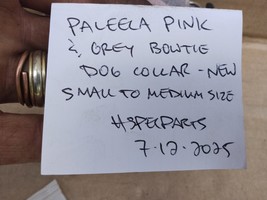 PALEELA PINK
& GREY BOWTIE
DOG COLLAR - NEW
SMALL TO MEDIUM SIZE
#SPECPARTS
7-12-2025